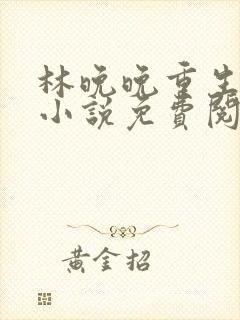 林晚晚重生
小说免費閱
黃金招